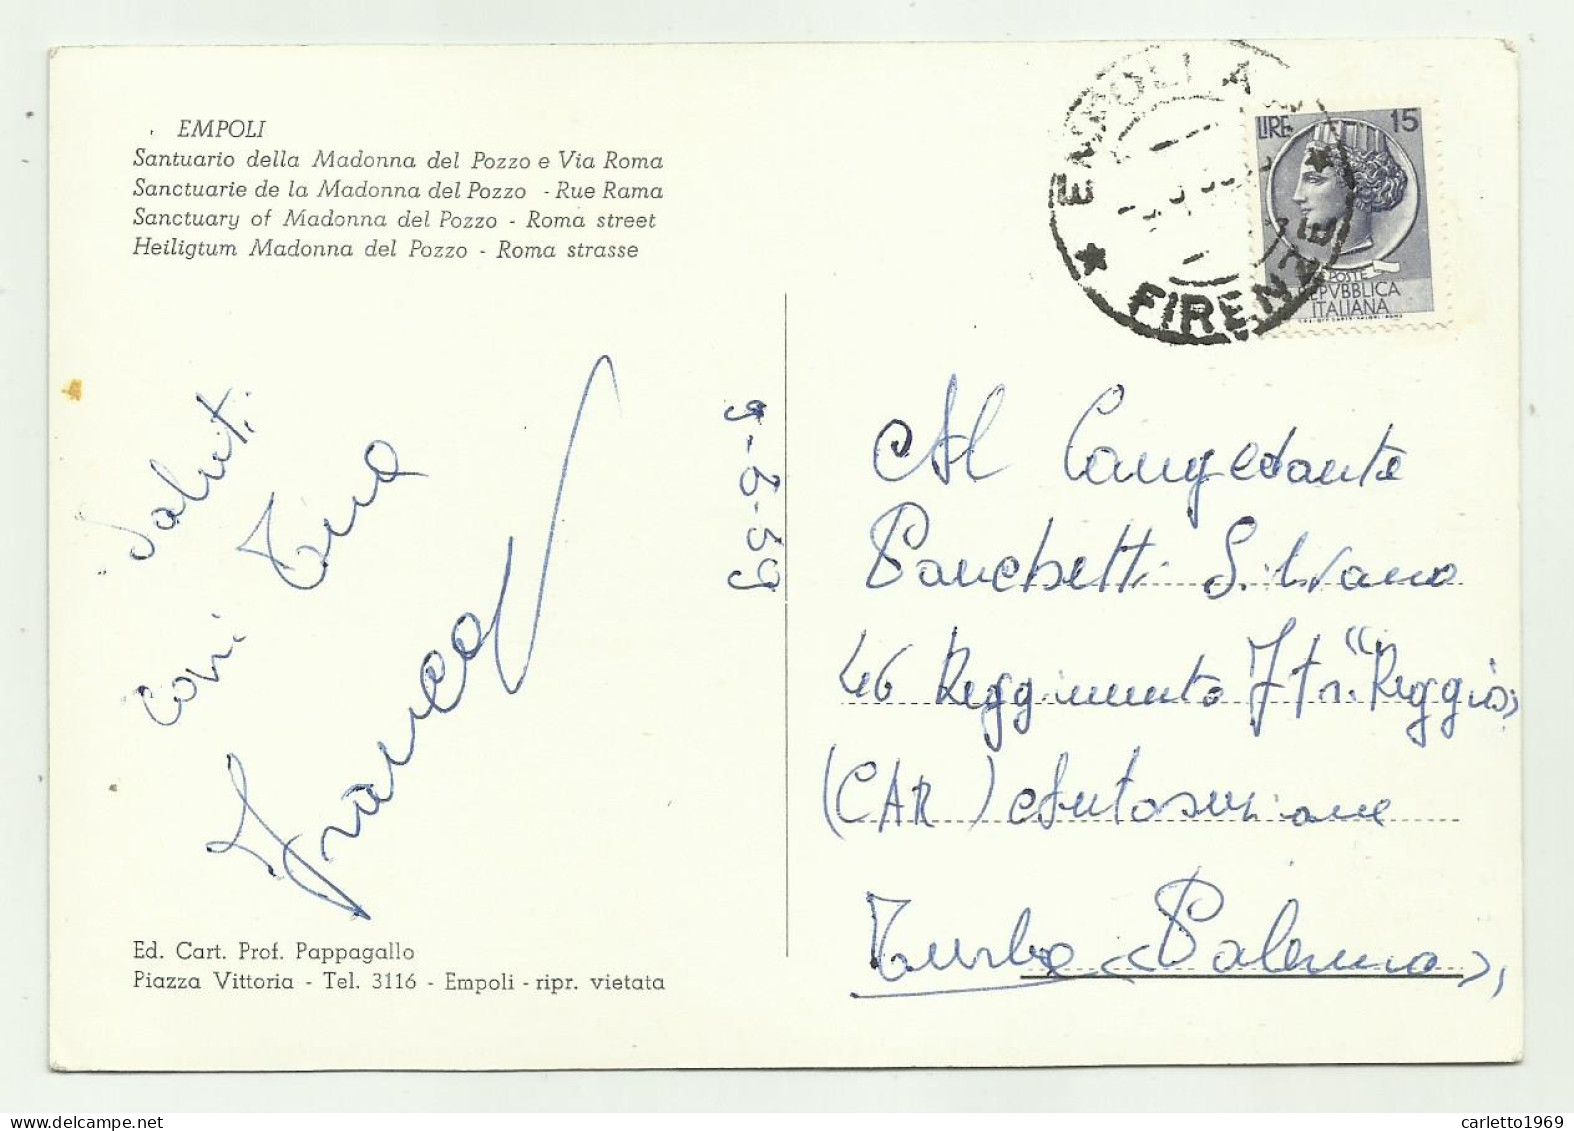 EMPOLI
Santuario della Madonna del Pozzo e Via Roma
Sanctuarie de la Madonna del Pozzo - Rue Rama
Sanctuary of Madonna del Pozzo - Roma street
Heiligtum Madonna del Pozzo - Roma strasse
EMPOLI A
FIRENZE
LIRE 15
POSTE
REPVBBLICA
ITALIANA
Saluti
Tina
Franca
9-6-59
Al Congedante
Panchetti Silvano
46 Reggimento Ftr. "Reggio"
(CAR) Autosezione
(Palermo)
Ed. Cart. Prof. Pappagallo
Piazza Vittoria - Tel. 3116 - Empoli - ripr. vietata
carletto1969